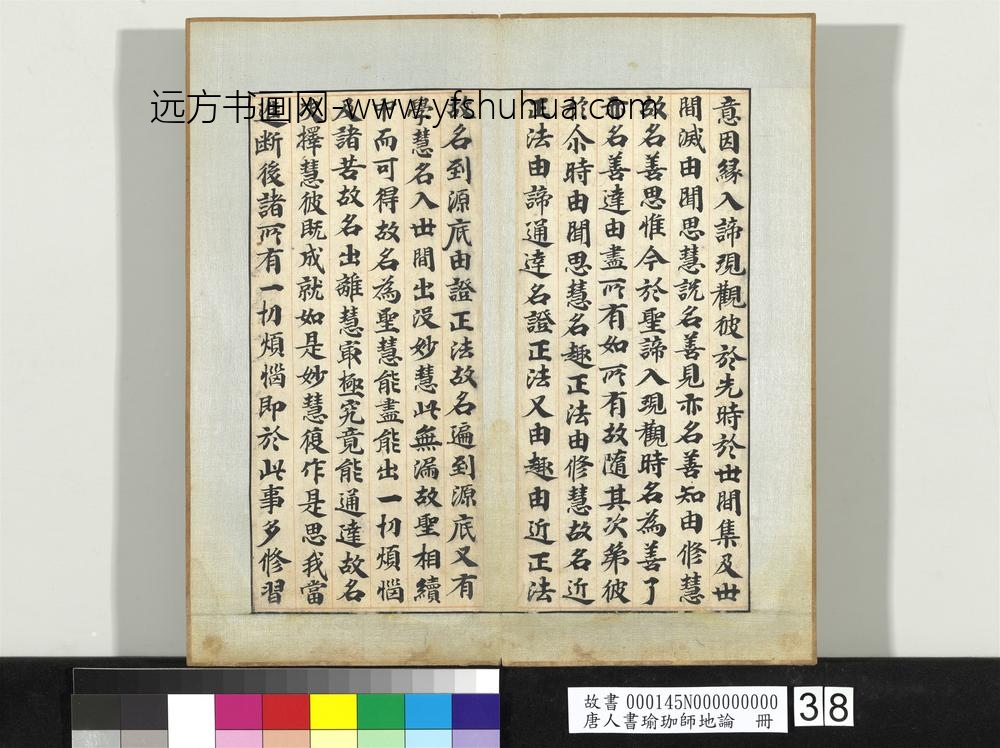 意因緣入諦現觀彼於先時於世間集及世
間滅由聞思慧說名善見亦名善知由修慧
故名善思惟今於聖諦入現觀時名為善了
名善達由盡所有如所有故隨其次第彼
於尒時由聞思慧名趣正法由修慧故名近
正法由諦通達名證正法又由趣由近正法
故名到源底由證正法故名遍到源底又有
學慧名入世間出沒妙慧此無漏故聖相續
中而可得故名為聖慧能盡能出一切煩惱
及諸苦故名出離慧最極究竟能通達故名
擇慧彼既成就如是妙慧復作是思我當
斷後諸所有一切煩惱即於此事多修習
远方书画网-www.yfshuhua.com
故書 000145N000000000
唐人書瑜珈師地論 冊
38